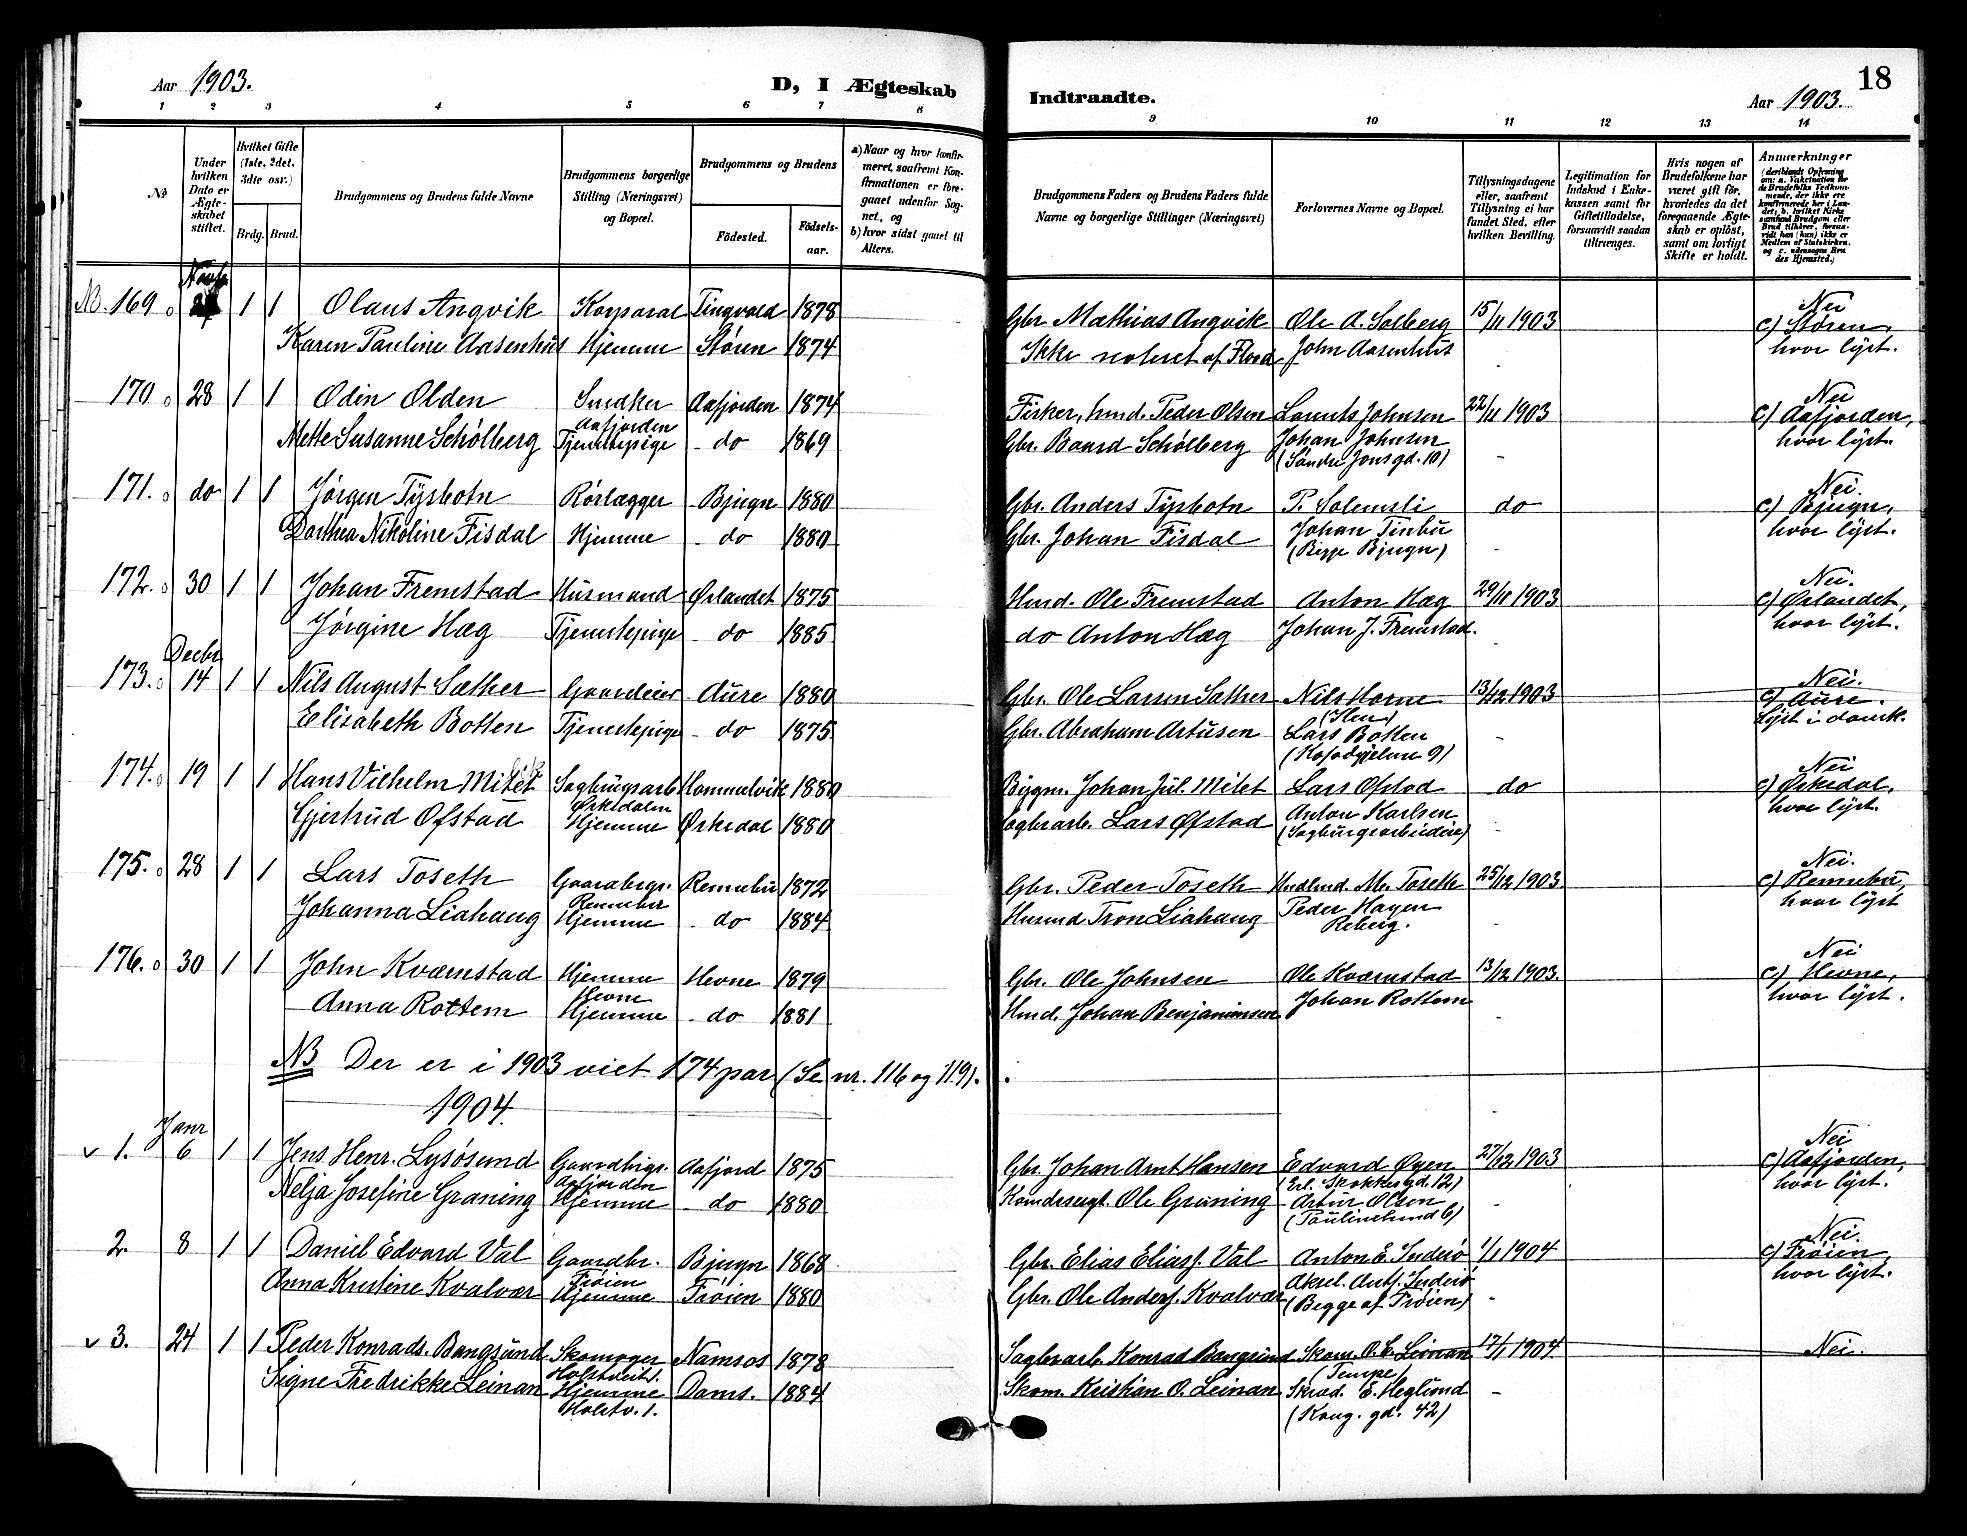 Aar 1903.
D, I Ægteskab
Indtraadte.
18
Aar 1903.
1 2 3 4 5 6 7 8
9 10 11 12 13 14
No
Under hvilken Dato er Ægteskabet stiftet.
Hvilket Gifte (1ste, 2det, 3die osv.)
Brdg. Brud.
Brudgommens og Brudens fulde Navne
Brudgommens borgerlige Stilling (Næringsvei) og Bopæl.
Brudgommens og Brudens
Fødested.
Fødselsaar.
a) Naar og hvor konfirmeret, saafremt Konfirmationen er foregaaet udenfor Sognet, og
b) hvor sidst gaaet til Alters.
Brudgommens Faders og Brudens Faders fulde Navne og borgerlige Stillinger (Næringsvei)
Forlovernes Navne og Bopæl.
Tillysningsdagene eller, saafremt Tillysning ei har fundet Sted, efter hvilken Bevilling.
Legitimation for Indskud i Enkekassen samt for Giftetilladelse, forsaavidt saadan tiltrænges.
Hvis nogen af Brudefolkene har været gift før, hvorledes da det foregaaende Ægteskab er opløst, samt om lovligt Skifte er holdt.
Anmerkninger (deriblandt Oplysning om: a. Vakcination for de Brudefolks Vedkommende, der ikke ere konfirmerede her i Landet; b. hvilket Kirkesamfund Brudgom eller Brud tilhører, forsaavidt han (hun) ikke er Medlem af Statskirken, og c. udensogns Brudes Hjemsted.)
NB. 169 1 1 Olaus Angvik Korporal Tingvold 1878 Gbr. Mathias Angvik Ole A. Solberg 15/11 1903 Nei
Karen Pauline Aasenhus Hjemme Støren 1874 Ikke noteret af John Aasenhus c) Støren, hvor lyst.
170 28 1 1 Odin Olden Snedker Aafjorden 1874 Fisker, hmd. Peder Olsen Lorents Johnsen 22/11 1903 Nei
Aafjorden
Mette Susanne Schølberg Tjenestepige do 1869 Gbr. Baard Schølberg Johan Johnsen c) Aafjorden, hvor lyst.
(Søndre Jonsgd. 10)
171. do 1 1 Jørgen Tysbotn Rørlægger Bjugn 1880 Gbr. Anders Tysbotn P. Solemsli do Nei.
Dorthea Nikoline Fisdal Hjemme do 1880 Gbr. Johan Fisdal Johan Tinbu c) Bjugn, hvor lyst.
(Begge Bjugn)
172. 30 1 1 Johan Fremstad Husmand Ørlandet 1875 Hmd. Ole Fremstad Anton Hæg 29/11 1903 Nei.
Jørgine Hæg Tjenestepige do 1885 do Anton Hæg Johan J. Fremstad. c) Ørlandet, hvor lyst.
Decbr
173. 14 1 1 Nils August Sæther Gaardeier Aure 1880 Gbr. Ole Larsen Sæther Nils Horne 13/12 1903 Nei.
Elisabeth Botten Tjenestepige do 1875 Gbr. Abraham Artusen Lars Botten c) Aure.
174. 19 1 1 Hans Vilhelm Mitet Sagbrugsarb Hommelvik 1880 Bygm. Johan Jul. Mitet Lars Ofstad do Nei
Orkedalen
Gjertrud Ofstad Hjemme Ørkedal 1880 Sagbrarb. Lars Øfstad Anton Karlsen c) Ørkedal, hvor lyst.
(Sagbrugsarbeidere)
175. 28 1 1 Lars Toseth Gaardbrgs. Rennebu 1872 Gbr. Peder Toseth M. Toseth 25/12 1903 Nei.
Rennebu
Johanna Liahaug Hjemme do 1884 Husmd Tron Liahaug Peder Hagen c) Rennebu, hvor lyst
176. 30 1 1 John Kværnstad Hjemme Hevne 1879 Gbr. Ole Johnsen Ole Kværnstad 13/12 1903. Nei
Hevne
Anna Rottem Hjemme do 1881 Hmd. Johan Benjaminsen Johan Rottem c) Hevne, hvor lyst.
NB Der er i 1903 viet 174 par (Se nr. 116 og 119).
1904.
Janr
v 1. 6 1 1 Jens Henr. Lysøsund Gaardbrgs. Aafjord 1875 Gbr. Johan Arnt Hansen Edvard Øyen 27/12 1903 Nei
Aafjorden (Erl. Skakkesgd. 12)
Nelja Josefine Graning Hjemme do 1880 Ole Graning Artur Olsen c) Aafjorden, hvor lyst.
(Paulinelund 6)
2. 8 1 1 Daniel Edvard Val Gaardbr. Bjugn 1868 Gbr. Elias Eliass. Val Anton E. Inderø 1/1 1904 Nei.
Frøien
Anna Kristine Kvalvær Hjemme Frøien 1880 Gbr. Ole Anders. Kvalvær Aksel Ants. Inderø c) Frøien, hvor lyst.
(Begge af Frøien)
v 3. 24 1 1 Peder Konrads. Bangsund Skomager Namsos 1878 Sagbrarb. Konrad Bangsund Skom. O. C. Leinan 17/1 1904 Nei.
Holstveit 1. (Tempe)
Signe Fredrikke Leinan Hjemme Doms. 1884 Skom. Kristian O. Leinan Skræd. E. Heglund
Holstv. 1. (Kong. gd. 42)